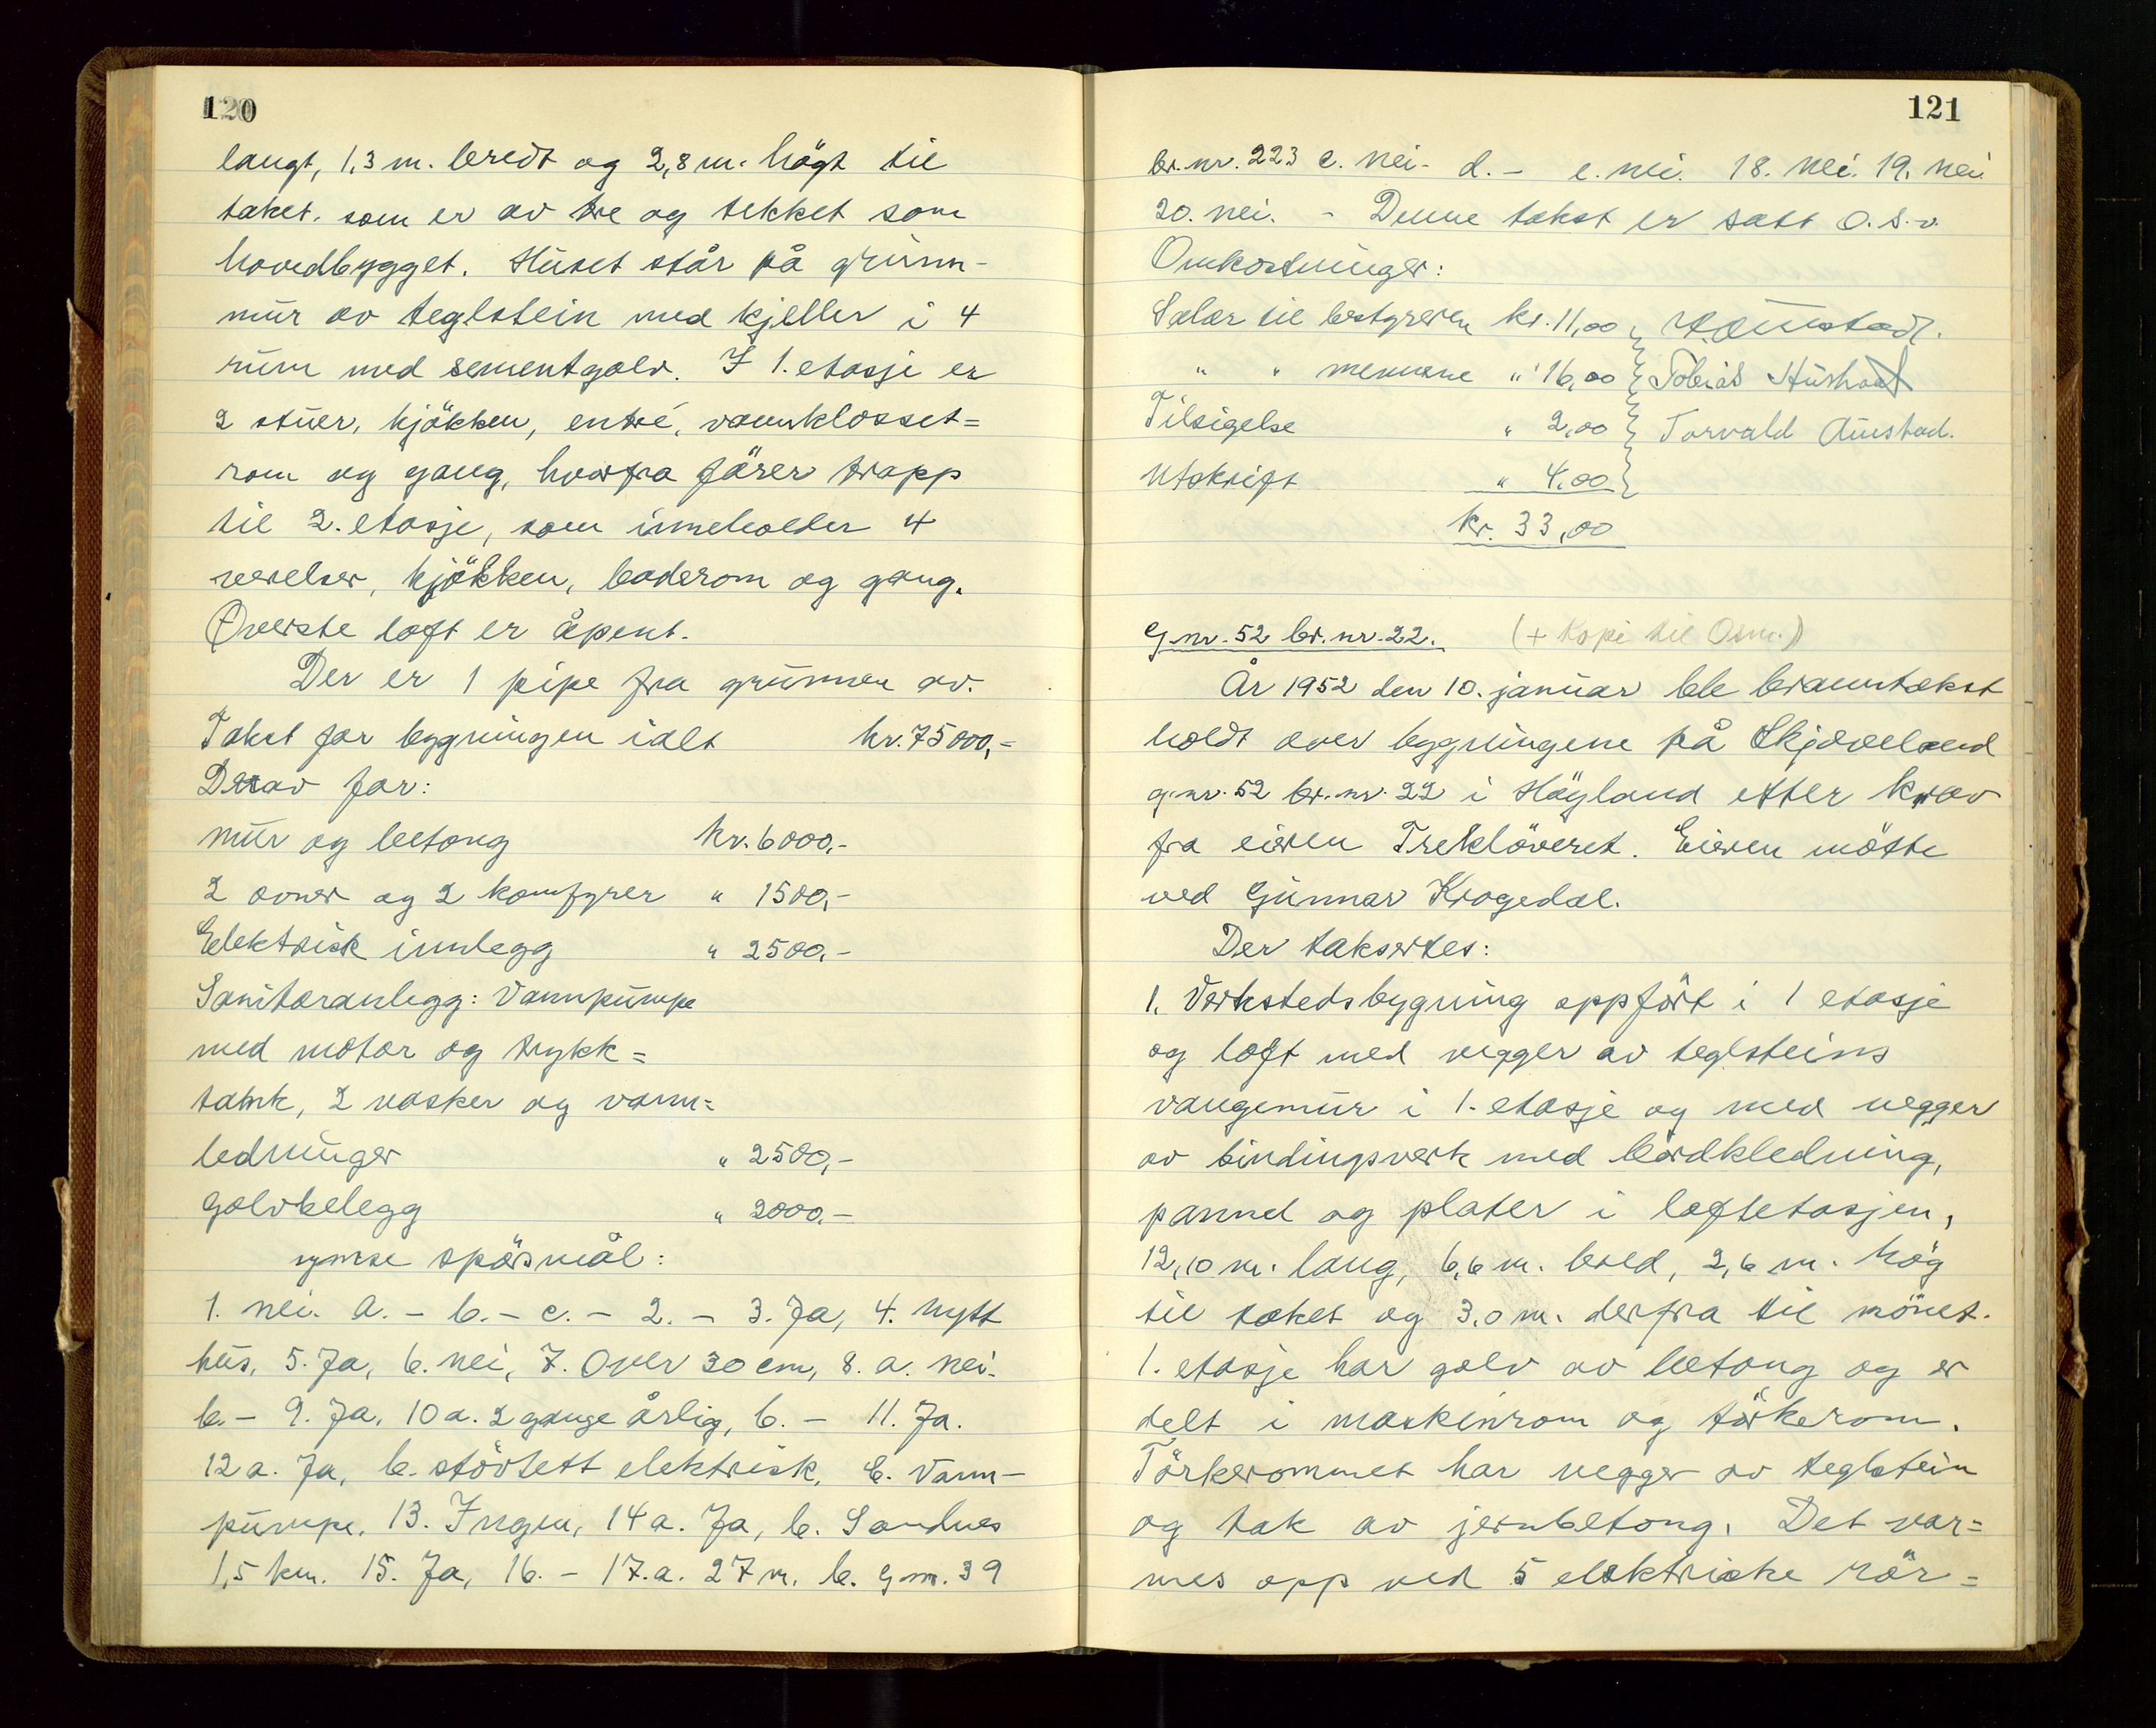 120
langt, 1,3 m. bredt og 2,8 m. högt til
taket, som er av tre og tekket som
hovedbygget. Huset står på grunn-
mur av teglstein med kjeller i 4
rum med sementgolv. I 1. etasje er
2 stuer, kjökken, entré, vannklosset=
rom og gang, hvorfra förer trapp
til 2. etasje, som inneholder 4
verelser, kjökken, baderom og gang.
Øverste loft er åpent.
Der er 1 pipe fra grunnen av.
Takst for bygningen ialt kr. 75000,-
Derav for:
mur og betong kr. 6000,-
2 ovner og 2 komfyrer " 1500,-
Elektrisk innlegg " 2500,-
Sanitæranlegg: Vannpumpe
med motor og trykk=
tank, 2 vasker og vann=
ledninger " 2500,-
Golvbelegg " 2000,-
ymse spörsmål:
1. nei. a. - b. - c. - 2. - 3. Ja, 4. nytt
hus, 5. Ja, 6. nei, 7. Over 30 cm, 8. a. nei.
b. - 9. Ja, 10 a. 2 gange årlig, b. - 11. Ja.
12 a. Ja, b. stövtett elektrisk, c. Vann-
pumpe. 13. Ingen, 14 a. Ja, b. Sandnes
1,5 km. 15. Ja, 16. - 17. a. 27 m. b. g.nr. 39
121
br. nr. 223 c. nei. d. - e. nei. 18. nei. 19. nei
20. nei. - Denne takst er satt o.s.v.
Omkostninger:
Salær til bestyreren kr. 11,00 Austad.
" " mennene " 16,00 Tobias Hushoat
Tilsigelse " 2,00 Torvald Austad.
Utskrift " 4,00
kr. 33,00
g.nr. 52 br. nr. 22. (+ Kopi til Osm.)
År 1952 den 10. januar ble branntakst
holdt over bygningene på Skjæveland
g.nr. 52 br. nr. 22 i Höyland etter krav
fra eieren Treklöveret. Eieren mötte
ved Gunnar Krogedal.
Der taksertes:
1. Verkstedsbygning oppfört i 1 etasje
og loft med vegger av teglsteins
vangemur i 1. etasje og med vegger
av bindingsverk med bordkledning,
pannel og plater i loftetasjen,
12,10 m. lang, 6,6 m. bred, 2,6 m. hög
til taket og 3,0 m. derfra til mönet.
1. etasje har golv av betong og er
delt i maskinrom og törkerom.
Törkerommet har vegger av teglstein
og tak av jernbetong. Det var=
mes opp ved 5 elektriske rör=